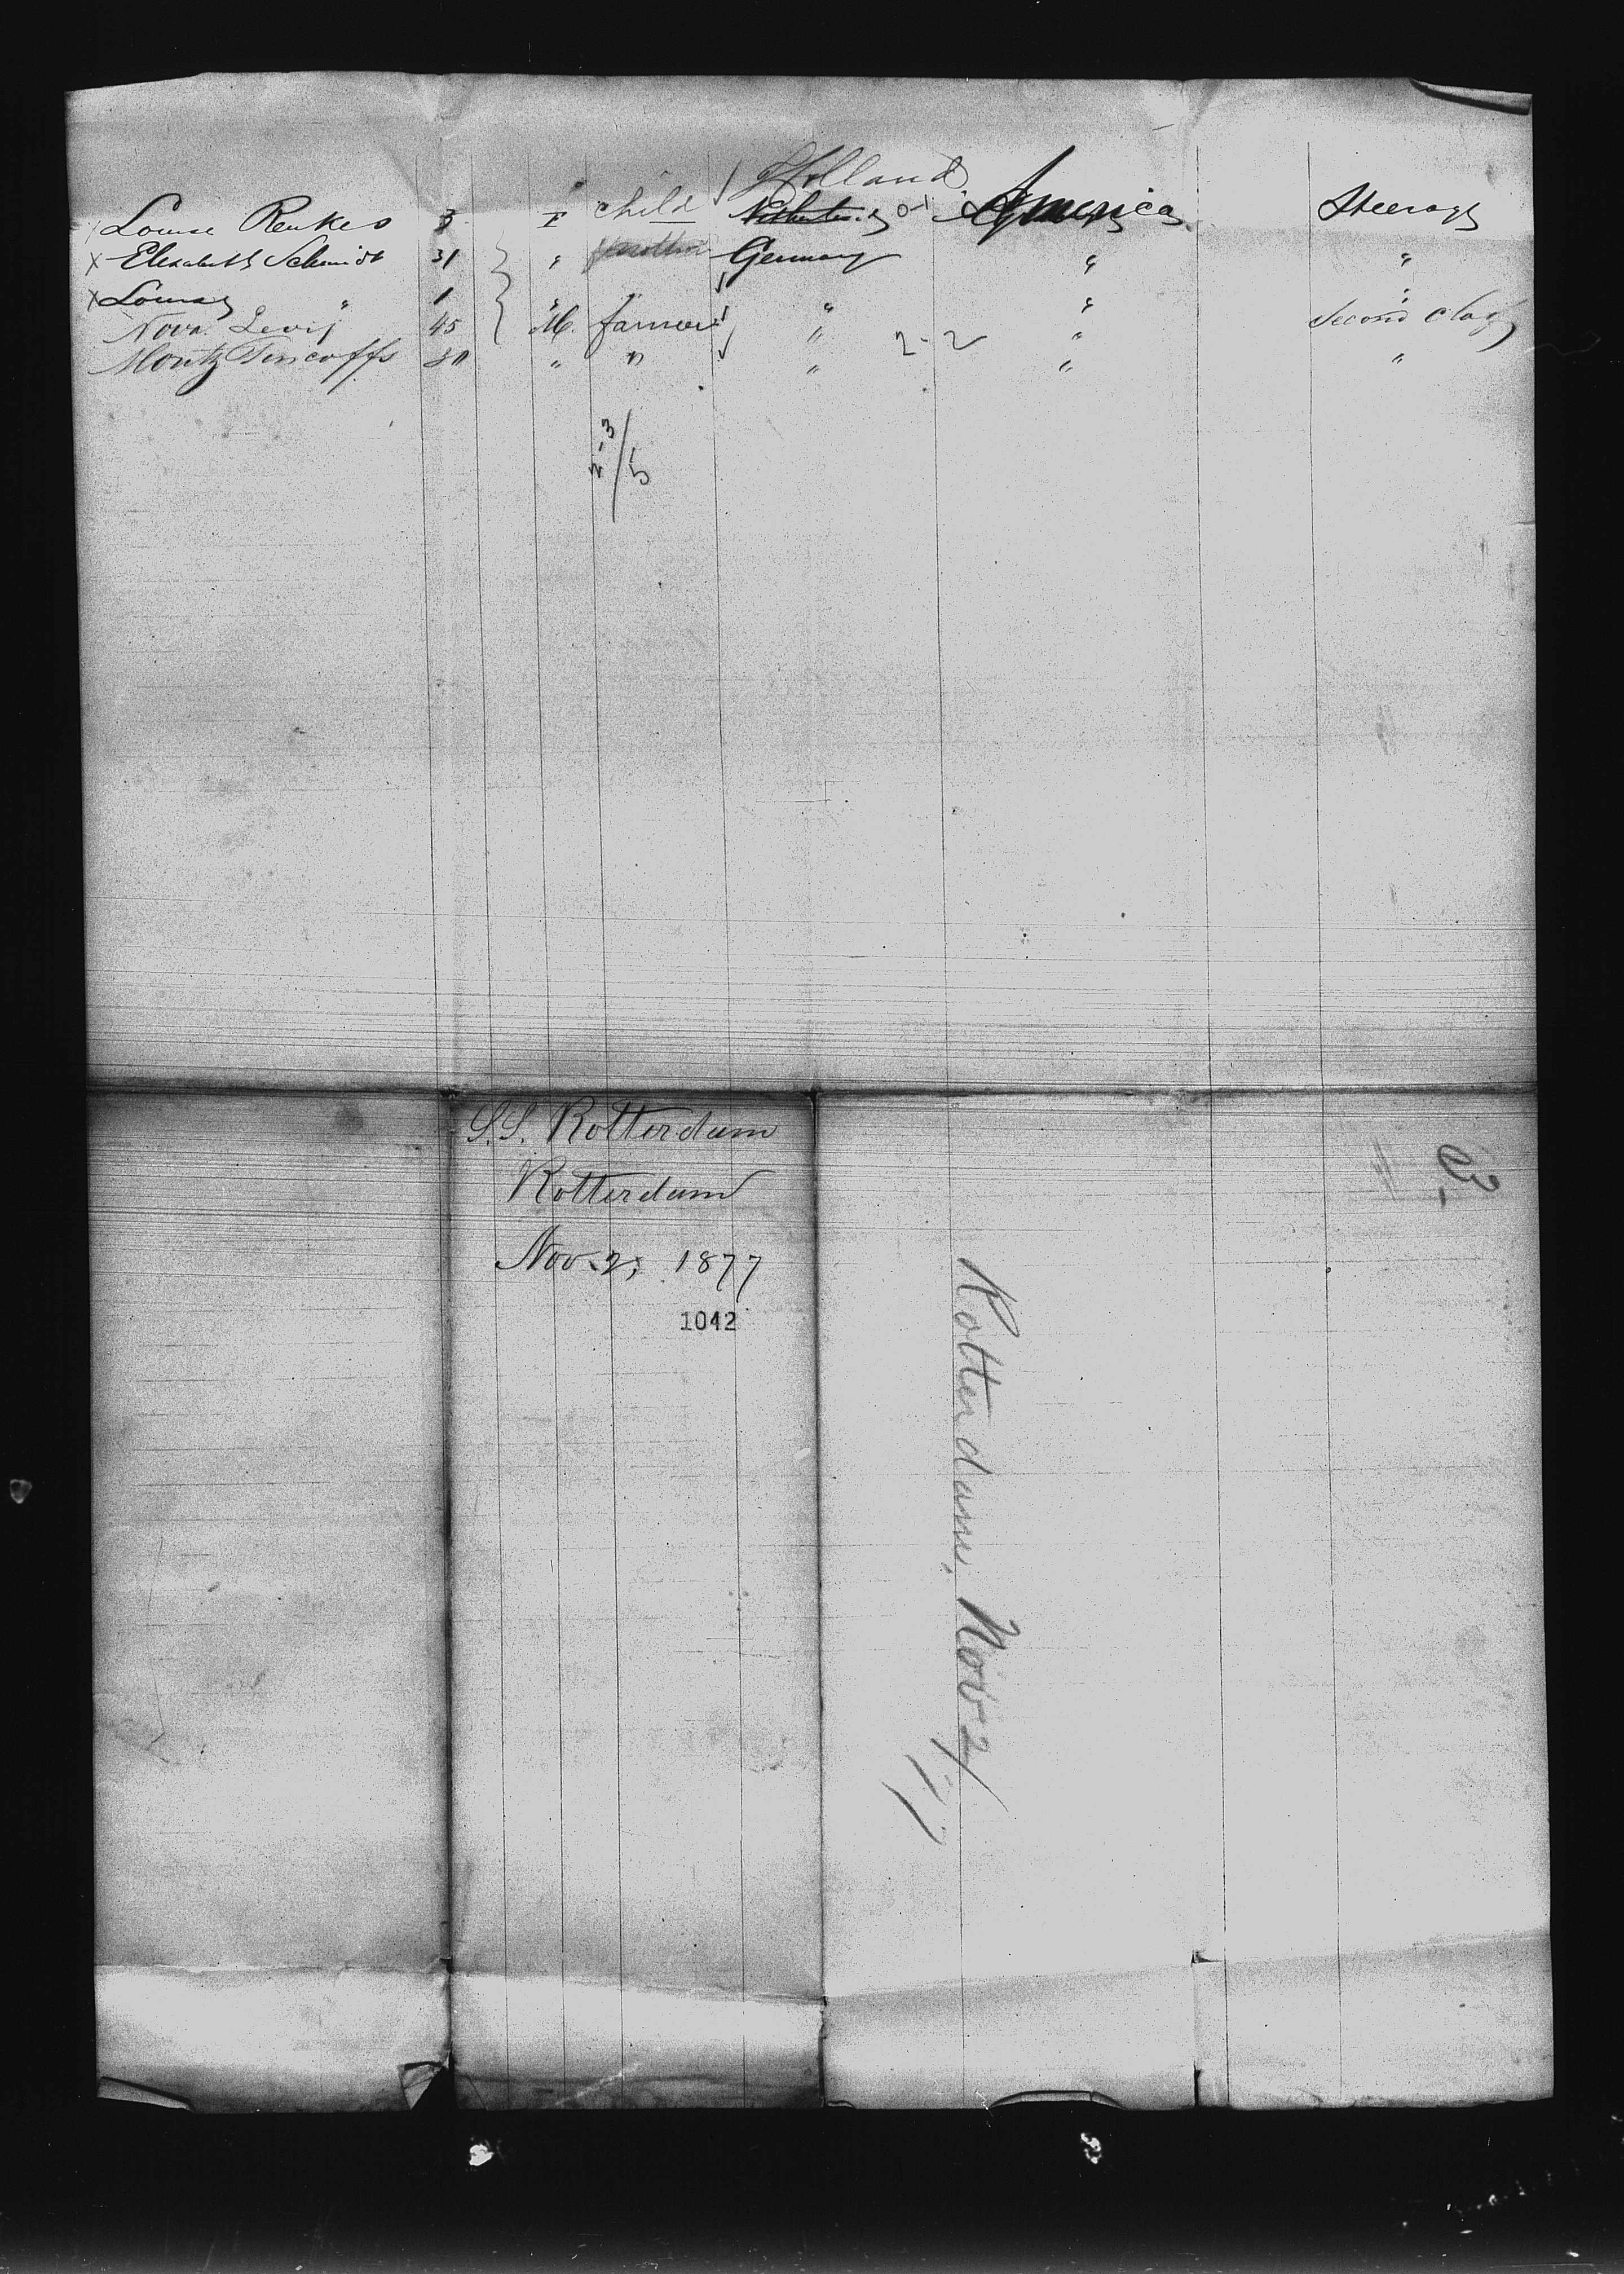 Holland
Louise Renkes 3 F child 0-1 America Steerage
x Elisabeth Schmidt 31 " Germany " "
x Louise " 1 " " " " "
Levij 45 M. farmer " 2-2 " Second Class
Moritz 30 " " " " "
2,3/5
S.S. Rotterdam
Rotterdam
Nov. 2, 1877
1042
Rotterdam, Nov 2/
77